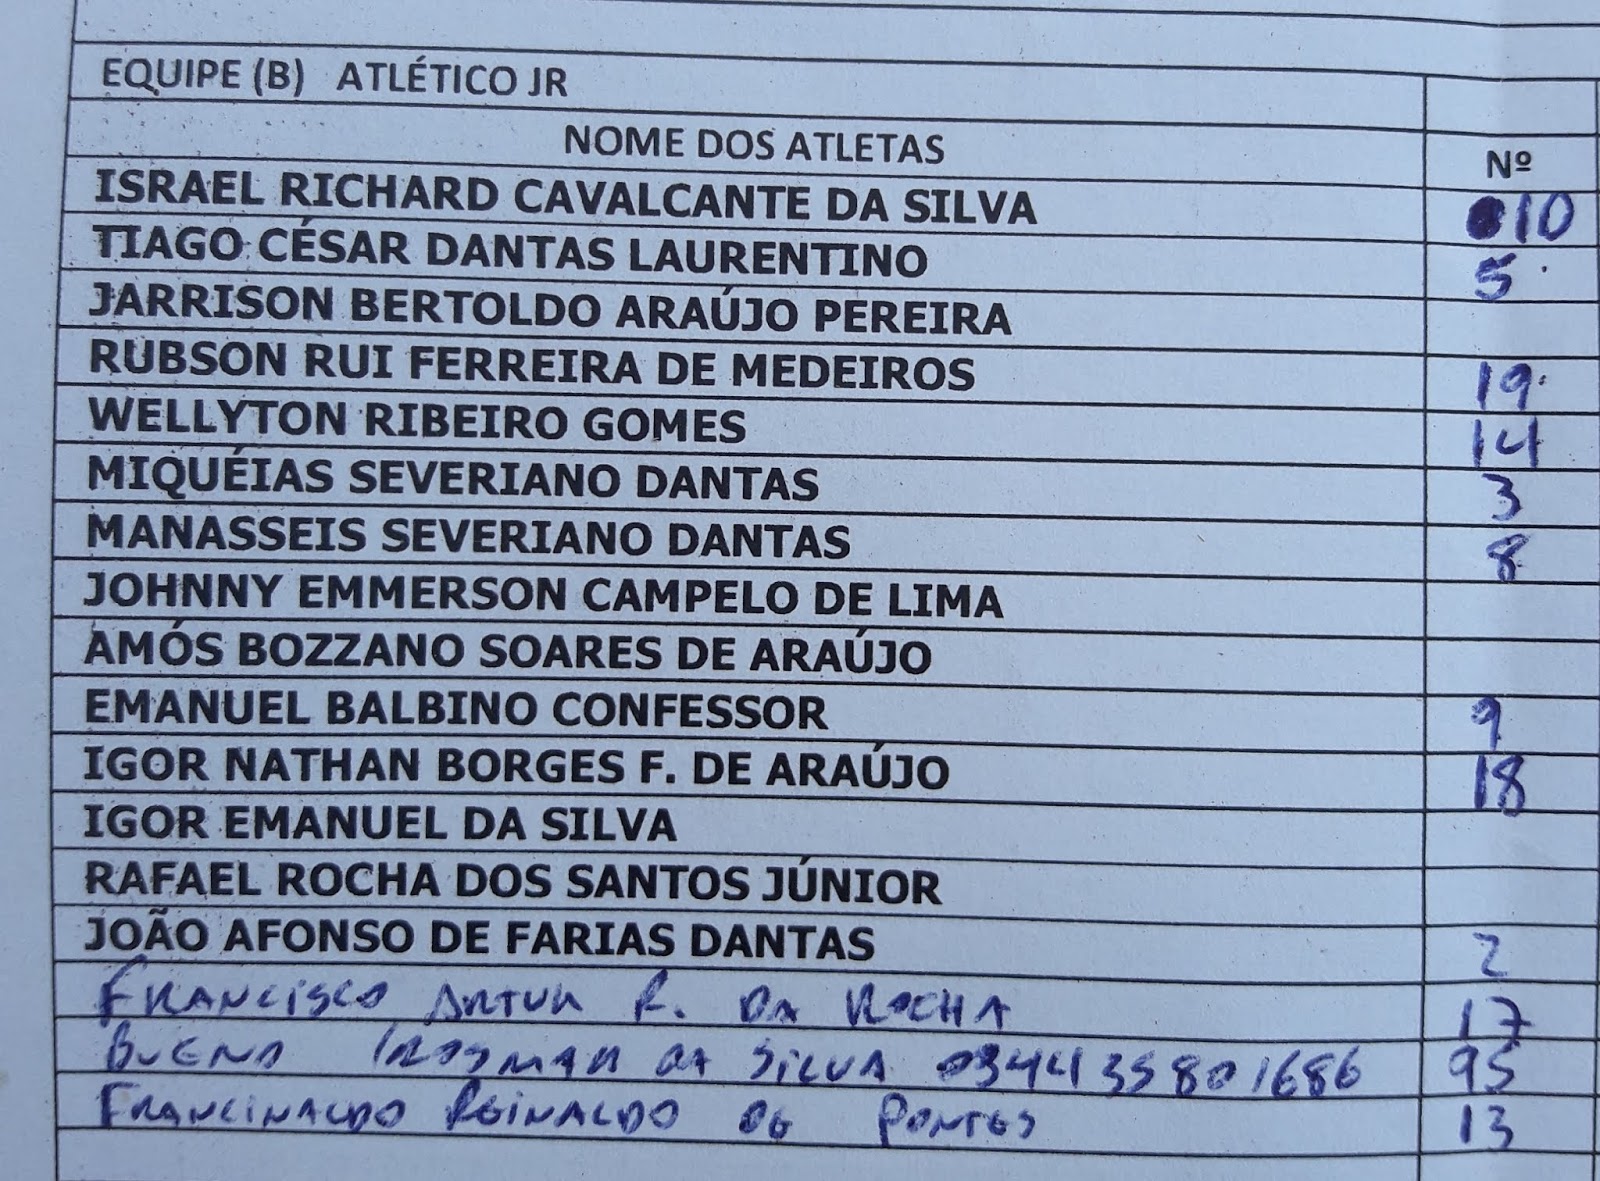 EQUIPE (B) ATLÉTICO JR
NOME DOS ATLETAS Nº
ISRAEL RICHARD CAVALCANTE DA SILVA 10
TIAGO CÉSAR DANTAS LAURENTINO 5
JARRISON BERTOLDO ARAÚJO PEREIRA
RUBSON RUI FERREIRA DE MEDEIROS 19
WELLYTON RIBEIRO GOMES 14
MIQUÉIAS SEVERIANO DANTAS 3
MANASSEIS SEVERIANO DANTAS 8
JOHNNY EMMERSON CAMPELO DE LIMA
AMÓS BOZZANO SOARES DE ARAÚJO
EMANUEL BALBINO CONFESSOR 9
IGOR NATHAN BORGES F. DE ARAÚJO 18
IGOR EMANUEL DA SILVA
RAFAEL ROCHA DOS SANTOS JÚNIOR
JOÃO AFONSO DE FARIAS DANTAS 2
FRANCISCO ARTUR R. DA ROCHA 17
BUENO DA SILVA 034435801686 95
FRANCINALDO REINALDO DE PONTES 13